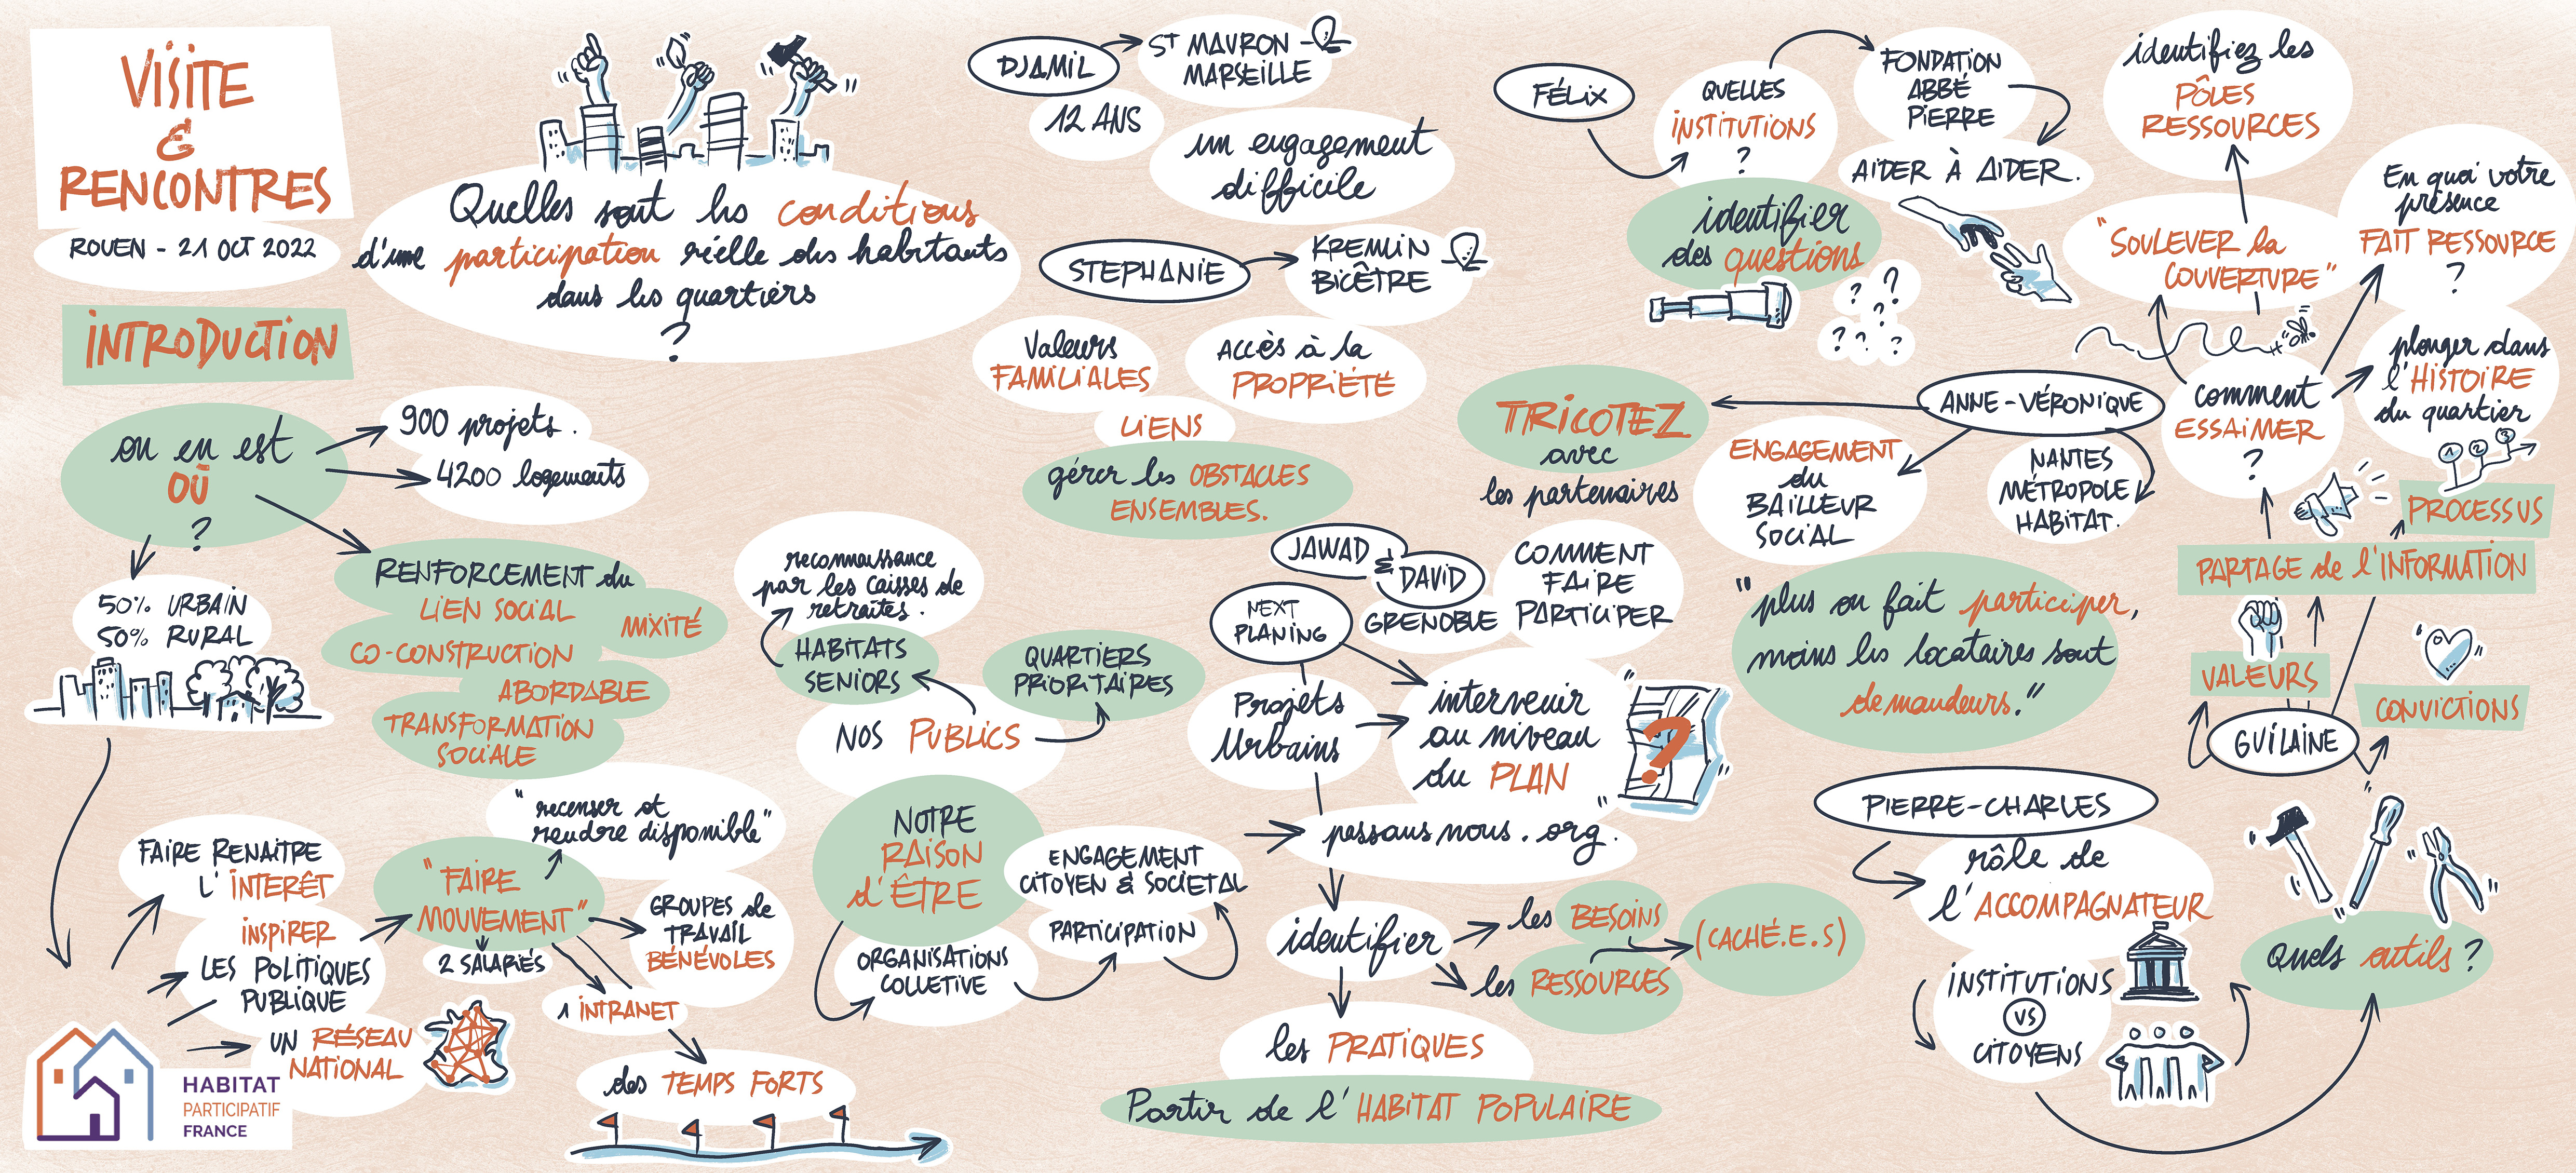 VISITE
&
RENCONTRES
ROUEN - 21 OCT 2022
INTRODUCTION
Quelles sont les conditions
d'une participation réelle des habitants
dans les quartiers
?
on en est
OÙ
?
900 projets.
4200 logements
50% URBAIN
50% RURAL
RENFORCEMENT du
LIEN SOCIAL
MIXITÉ
CO-CONSTRUCTION
ABORDABLE
TRANSFORMATION
SOCIALE
FAIRE RENAITRE
L'INTERÊT
INSPIRER
LES POLITIQUES
PUBLIQUE
UN RÉSEAU
NATIONAL
HABITAT
PARTICIPATIF
FRANCE
"FAIRE
MOUVEMENT"
"recenser et
rendre disponible"
2 SALARIÉS
GROUPES de
TRAVAIL
BÉNÉVOLES
1 INTRANET
des TEMPS FORTS
reconnaissance
par les caisses de
retraites.
HABITATS
SENIORS
QUARTIERS
PRIORITAIRES
NOS PUBLICS
NOTRE
RAISON
d'ÊTRE
ORGANISATIONS
COLLETIVE
PARTICIPATION
ENGAGEMENT
CITOYEN & SOCIETAL
DJAMIL
ST MAURON -
MARSEILLE
12 ANS
un engagement
difficile
STEPHANIE
KREMLIN
BICÊTRE
Valeurs
FAMILIALES
ACCÈS à la
PROPRIÉTÉ
LIENS
gérer les OBSTACLES
ENSEMBLES.
JAWAD
&
DAVID
GRENOBLE
NEXT
PLANING
COMMENT
FAIRE
PARTICIPER
Projets
Urbains
intervenir
au niveau
du PLAN
?
pessans nous.org.
identifier
les BESOINS
les RESSOURCES
(CACHÉ.E.S)
les PRATIQUES
Partir de l'HABITAT POPULAIRE
FÉLIX
QUELLES
INSTITUTIONS
?
FONDATION
ABBÉ
PIERRE
AIDER À AIDER.
identifier
des questions
? ?
?
? ? ?
ANNE-VÉRONIQUE
TRICOTEZ
avec
les partenaires
ENGAGEMENT
du
BAILLEUR
SOCIAL
NANTES
MÉTROPOLE
HABITAT.
"plus on fait participer,
moins les locataires sont
demandeurs."
identifiez les
PÔLES
RESSOURCES
"SOULEVER la
COUVERTURE"
En quoi votre
présence
FAIT RESSOURCE
?
plonger dans
l'HISTOIRE
du quartier
comment
ESSAIMER
?
1 2 3
PROCESSUS
PARTAGE de l'INFORMATION
VALEURS
CONVICTIONS
GUILAINE
PIERRE-CHARLES
rôle de
l'ACCOMPAGNATEUR
INSTITUTIONS
VS
CITOYENS
Quels outils ?